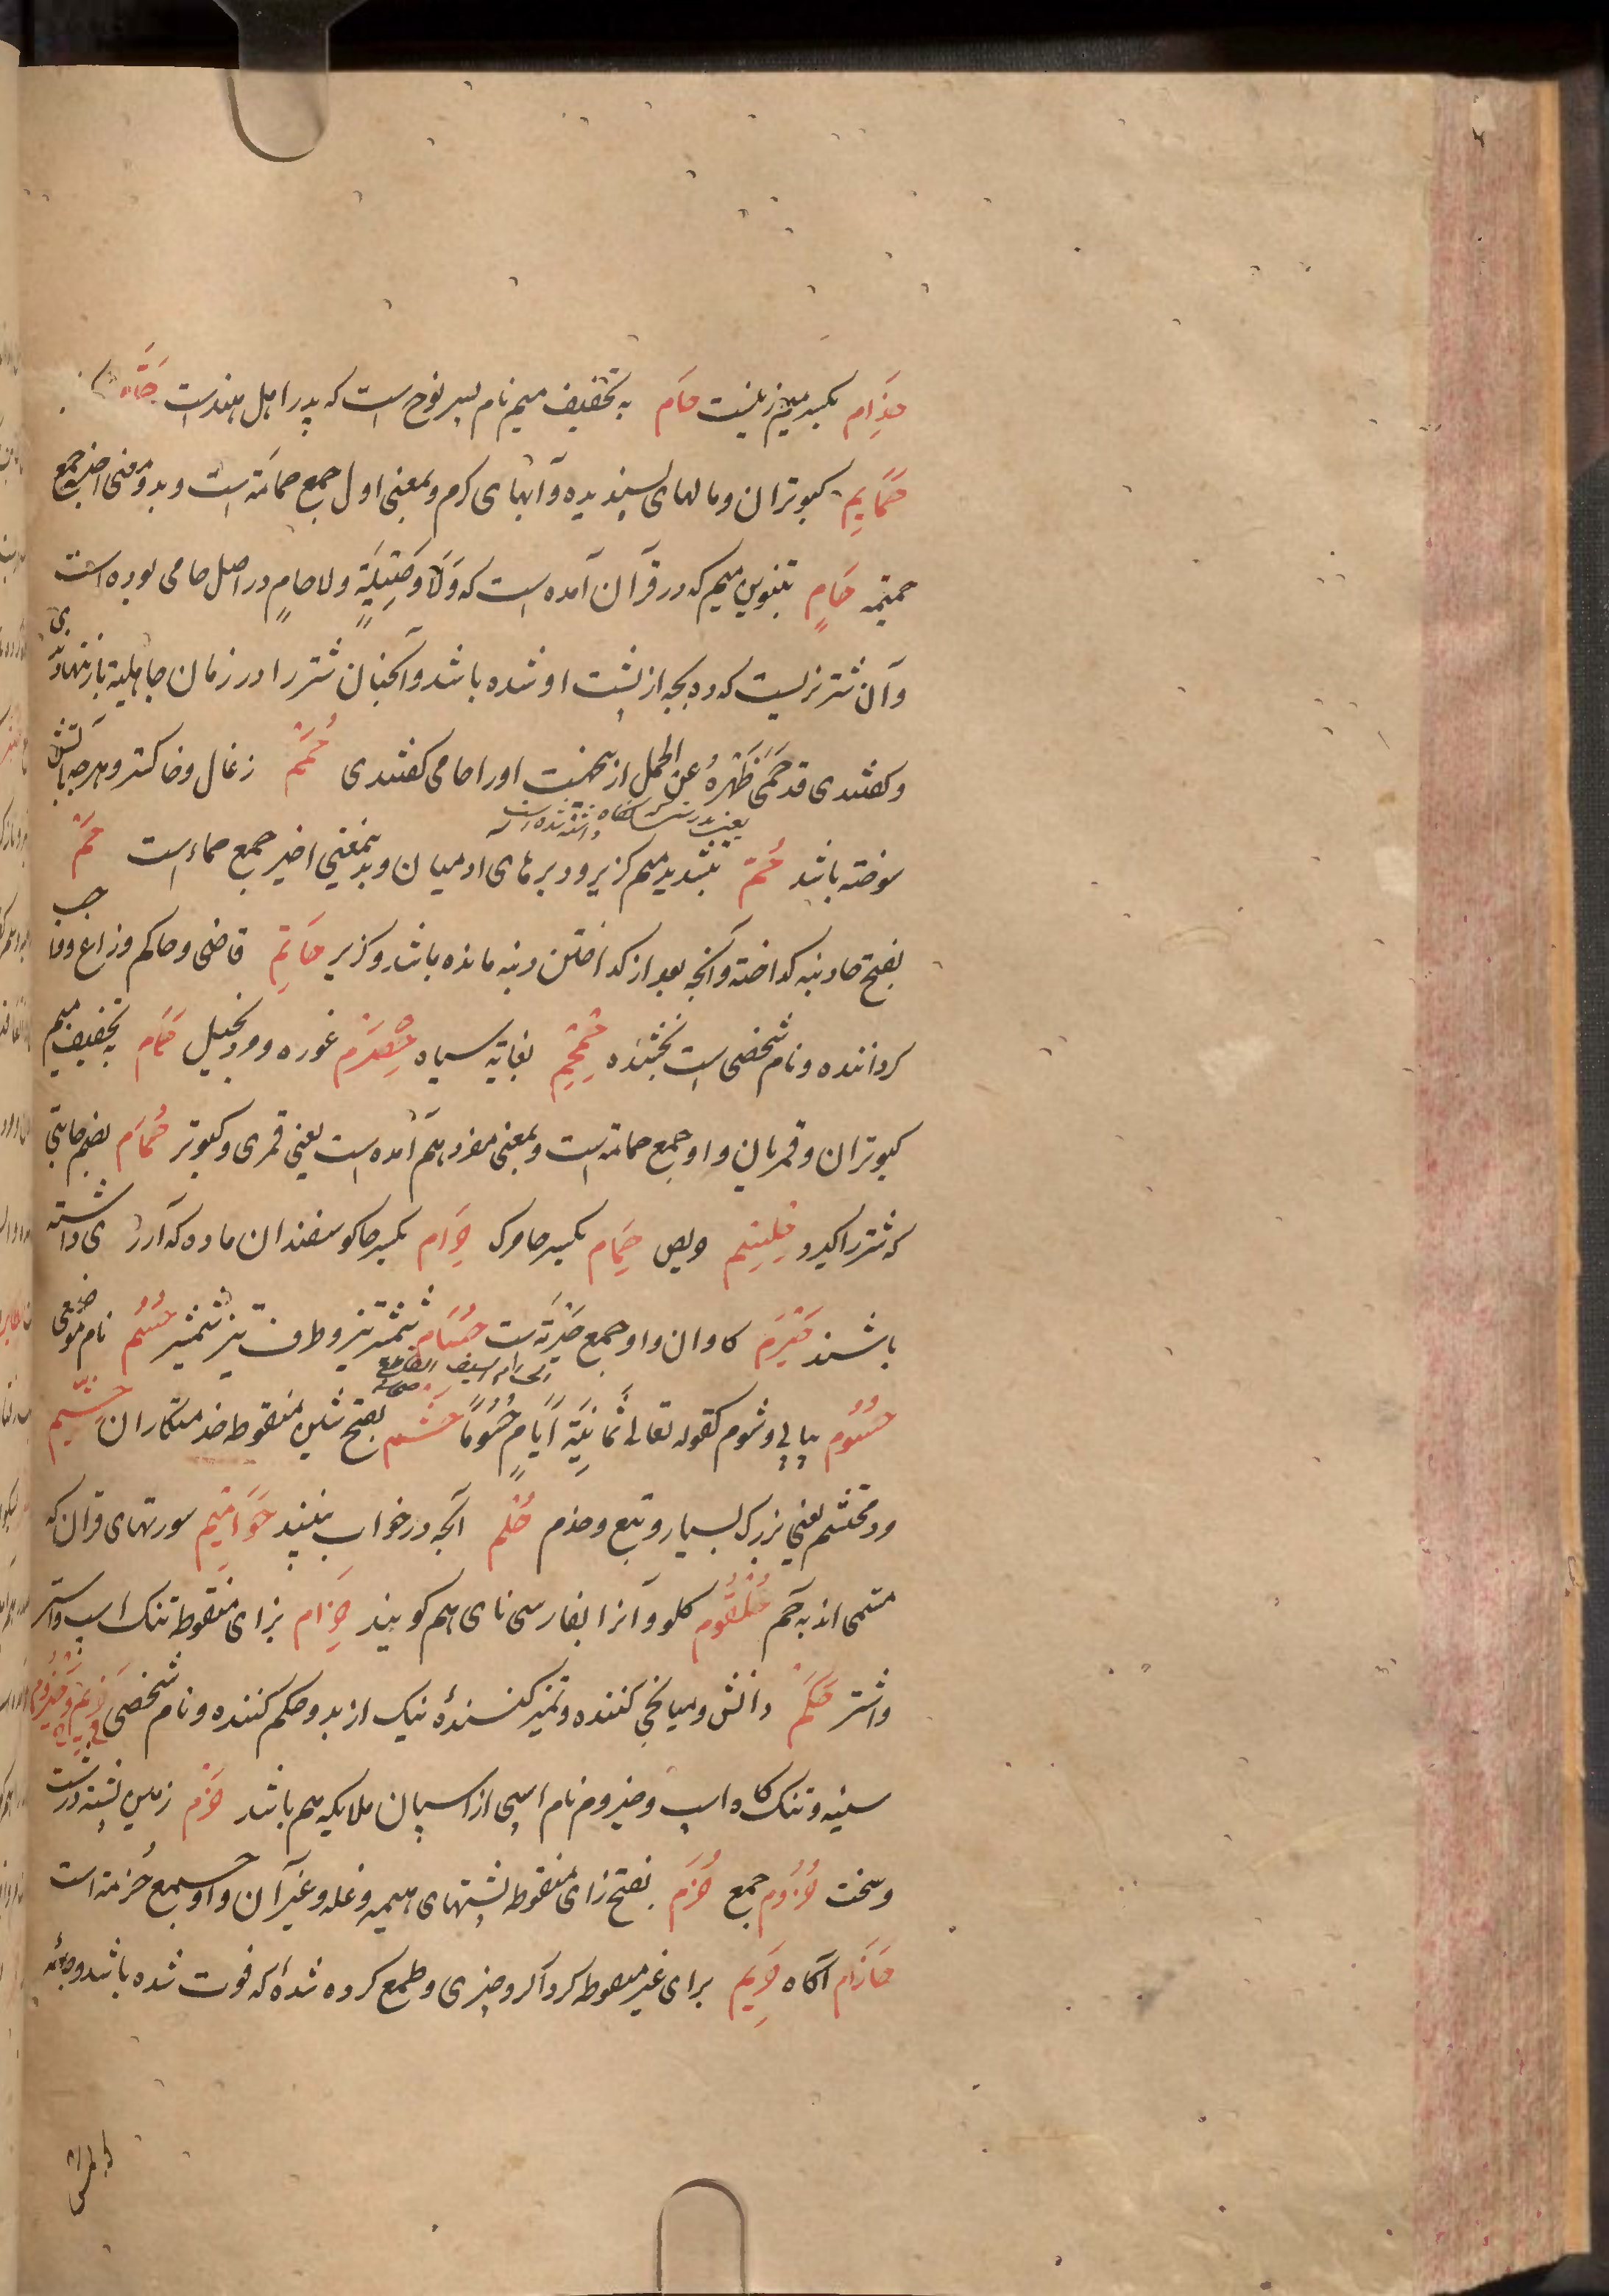 حذام بکسر میم زنیست حام به تخفیف میم نام پسر نوح است که پدر اهل هندست
حمایم کبوتران و مالهای پسندیده و آبهای کرم و بمعنی اول جمع حمامة است و بدو معنی اخیر جمع
حمیمه حامٍ بتنوین میم که در قرآن آمده است که وَلَا وَصِيلَةٍ ولا حامٍ در اصل حامی بوده است
و آن شتر نریست که ده بچه از پشت او شده باشد و آنچنان شتر را در زمان جاهلیة بار ننهادندی
و کفتندی قد حَمَی ظَهْرَهُ عن الحمل ازینجهت او را حامی کفتندی حُمَم زغال و خاکستر و هرچه بآتش
سوخته باشد حُمّ بتشدید میم کزیر و دبرهای ادمیان و بدینمعنی اخیر جمع حماء است حَمّ
بفتح حا دنبه کداخته و آنچه بعد از کداختن دنبه مانده باشد و کزیر حاتم قاضی و حاکم و زاغ و واجب
کرداننده و نام شخصی است بخشنده حِمحِم بغایة سیاه حِصرِم غوره و مرد بخیل حَمام به تخفیف میم
کبوتران و قمریان و او جمع حمامة است و بمعنی مفرد هم آمده است یعنی قمری و کبوتر حُمام بضم حا تبی
که شتر را کیرد حریص حِمام بکسر حا مرک حِرام بکسر حا کوسفندان ماده که آرزوی داشته
باشند کاوان و او جمع است حُسام شمشیر تیز و طرف تیز شمشیر حُسُم نام موضعی
حُسُوم پیاپی و شوم کقوله تعالی ثَمَانِيَةَ أَيَّامٍ حُسُومًا حَشَم بفتح شین منقوطه خدمتکاران حَشِیم
مرد محتشم یعنی بزرک بسیار و تبع و خدم حُلم آنچه در خواب بینند حَوامیم سورتهای قران که
مسمی اند به حم حُلقُوم کلو و آنرا بفارسی نای هم کویند حِزام بزای منقوطه تنک اسپ و استر
و اشتر حَکَم دانش و میانجی کننده و تمیز کنندهٔ نیک از بد و حکم کننده و نام شخصی حَزِیم و حَیزُوم
سینه و تنک کاه اسپ و حیزوم نام اسپی از اسپان ملایکه هم باشد حَزم زمین پشته درشت
و سخت حُزُوم جمع حُزَم بفتح زای منقوطه پشتهای هیمه و غله و غیر آن و او جمع حُزمة است
حازم آکاه حَرِیم برای غیر منقوطه کرداکرد چیزی و طمع کرده شدهٔ که فوت شده باشد و جامهٔ